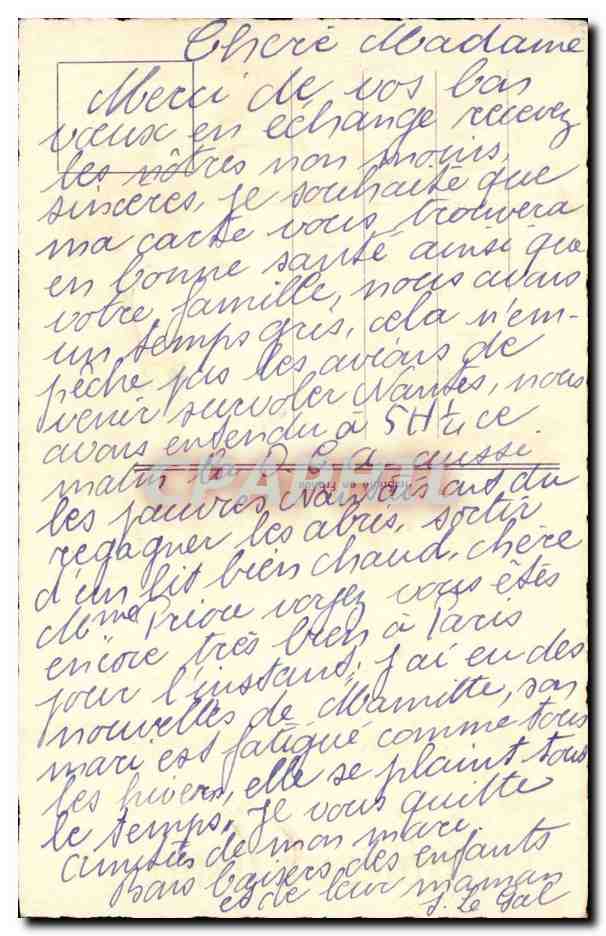 Cheré Madame
Merci de vos bon
vœux en échange recevez
les nôtres non moins,
sincères, je souhaite que
ma carte vous trouvera
en bonne santé ainsi que
votre famille, nous avons
un temps gris, cela n'em-
pêche pas les avions de
venir survoler Nantes, nous
avons entendu à 5H ce
matin la D.C.A. aussi
les pauvres Nantais ont du
regagner les abris, sortir
d'un lit bien chaud, chère
Mme Priou voyez vous êtes
encore très bien à Paris
pour l'instant; j'ai eu des
nouvelles de Mamitte, son
mari est fatigué comme tous
les hivers, elle se plaint tout
le temps, je vous quitte
amitiés de mon mari
bons baisers des enfants
et de leur maman
J. Le Gal
CPARAMA